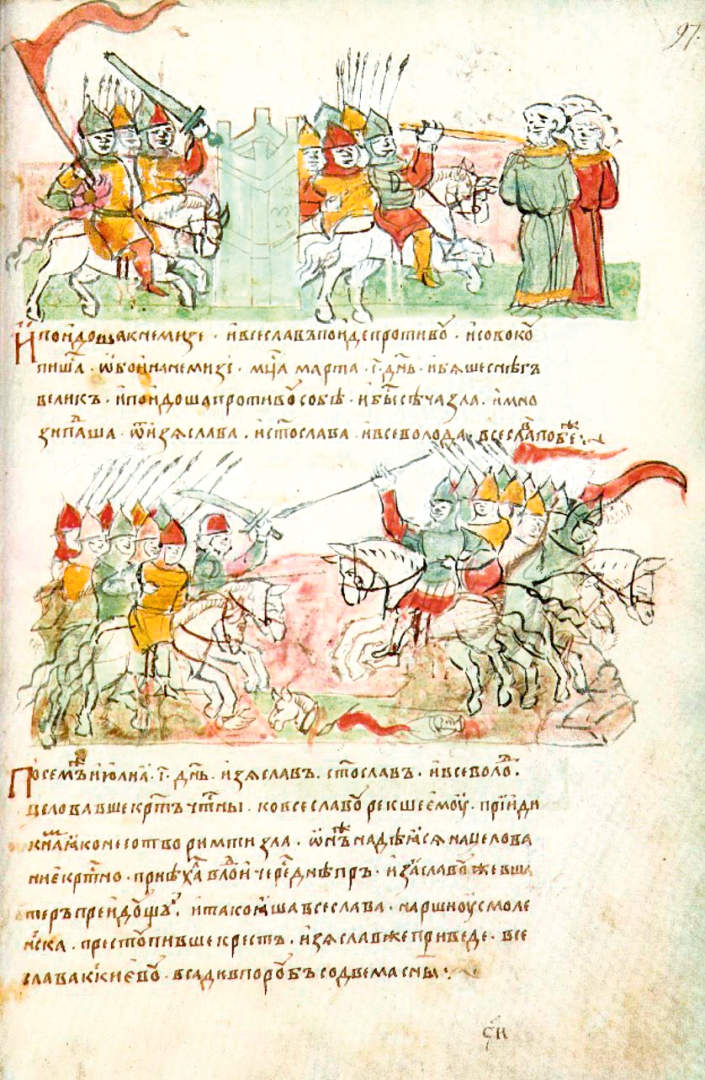 97.
И поидоша к Немизе · и Всеславъ поиде противоу · и совокоу
пишасѧ · ѡбои на Немизѣ · мⷭ҇ца марта · г҃ · дн҃ь · и бѧше снѣгъ
великъ · и поидоша противоу собѣ · и быⷭ҇ сѣча зла · и мно
зи падоша · ѿ Изѧслава · и Ст҃ослава · и Всеволода
По семъ же июлѧ · і҃ · дн҃ь · Изѧславъ · Ст҃ославъ · и Всеволоⷣ ·
целовавше крⷭ҇тъ чтⷭ҇ны · ко Всеславоу рекше ємоу · приїди
к намъ ꙗко не сотворим ти зла · ѡнъ же надѣꙗсѧ на целова
ние крⷭ҇тно · приѣха в лоⷣи череⷥ Днѣпръ · Изѧславоу же в ша
теръ преидоущю · и тако ꙗша Всеслава · на Рши оу Смоле
ньска · престоупивше крестъ · Изѧслав же приведе · Все
слава къ Києвоу · всади в пороубъ со двема сн҃ы
с҃и